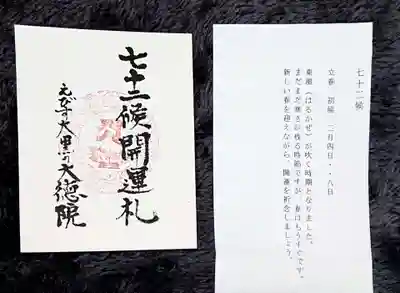 七十二候開運札
えびす大黒の大徳院
七十二候
立春 初候 二月四日・・八日
東風（はるかぜ）が吹く時期となりました。
まだまだ寒さが残る時節ですが、春はもうすぐです。
新しい春を迎えながら、開運を祈念しましょう。